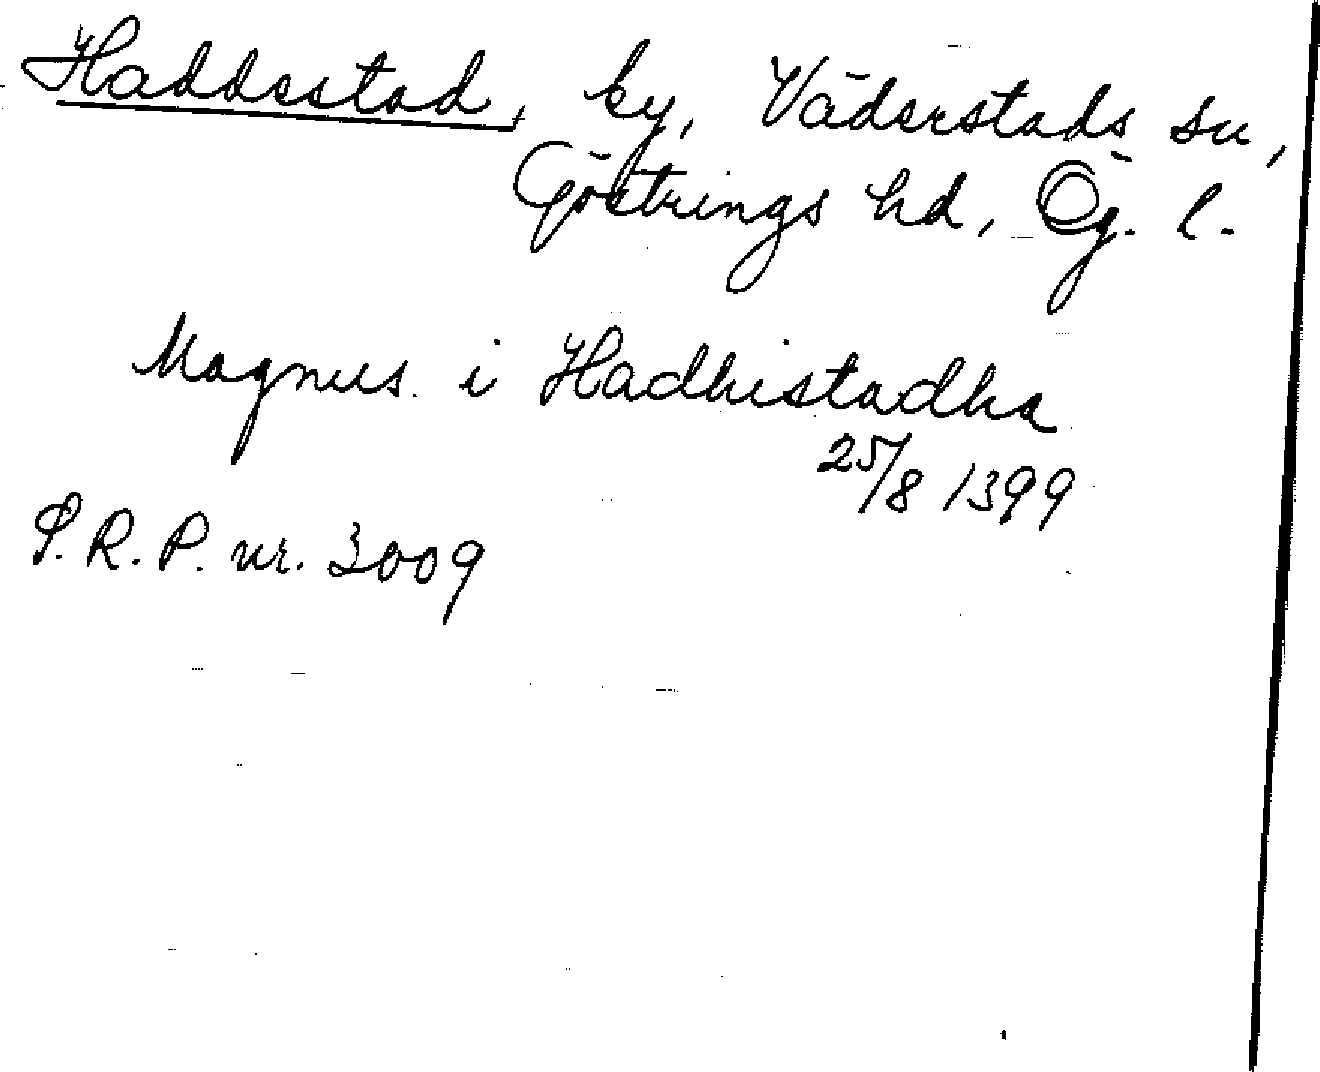 Haddestad, by, Väderstads sn,
Göstrings hd, Ög. l.
Magnus i Hadhistadha
25/8 1399
S.R.P. nr. 3009